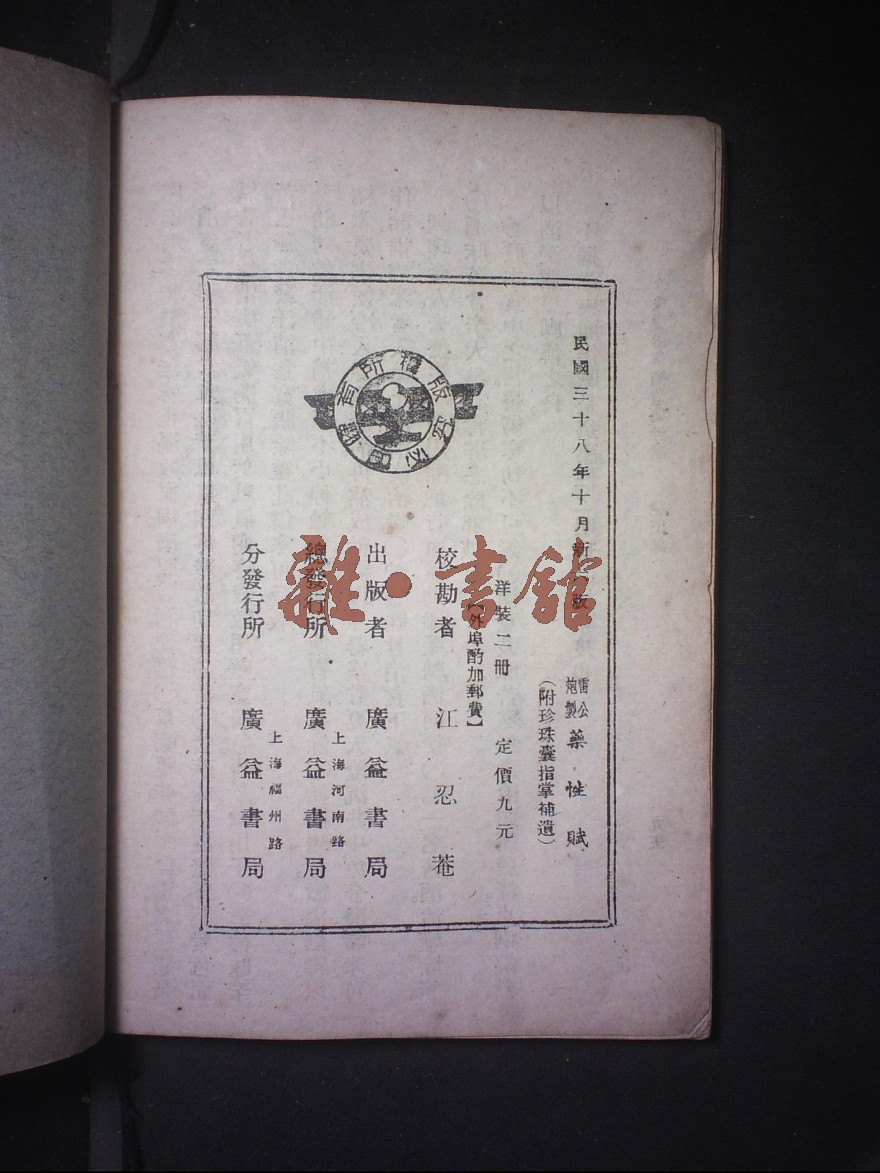 民國三十八年十月新一版
雷公
炮製
藥性賦
（附珍珠囊指掌補遺）
洋裝二冊 定價九元
【外埠酌加郵費】
校勘者 江忍菴
出版者 廣益書局
總發行所 上海河南路 廣益書局
分發行所 上海福州路 廣益書局
版權所有
翻印必究
雜·書館